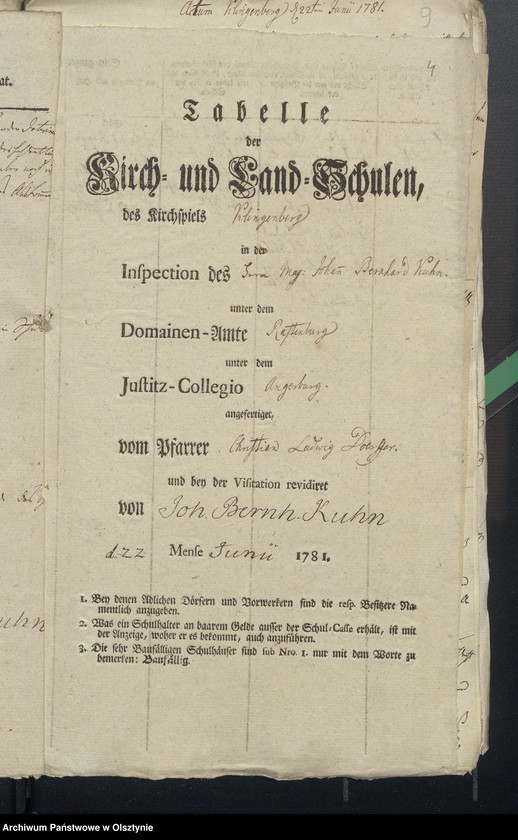 Actum Klingenberg d 22t Junii 1781.
9
4
at.
Tabelle
der
Kirch- und Land-Schulen,
des Kirchspiels Klingenberg
in der
Inspection des Herrn Mag: Johan Bernhard Kuhn.
unter dem
Domainen-Amte Rastenburg
unter dem
Justitz-Collegio Angerburg.
angefertiget,
vom Pfarrer Christian Ludwig
und bey der Visitation revidiret
von Joh. Bernh. Kuhn
d. 22 Mense Junii 1781.
1. Bey denen Adlichen Dörfern und Vorwerkern sind die resp. Besitzere Na-
mentlich anzugeben.
2. Was ein Schulhalter an baarem Gelde ausser der Schul-Casse erhält, ist mit
der Anzeige, woher er es bekommt, auch anzuführen.
3. Die sehr Baufälligen Schulhäuser sind sub Nro. 1. nur mit dem Worte zu
bemerken: Baufällig.
Archiwum Państwowe w Olsztynie